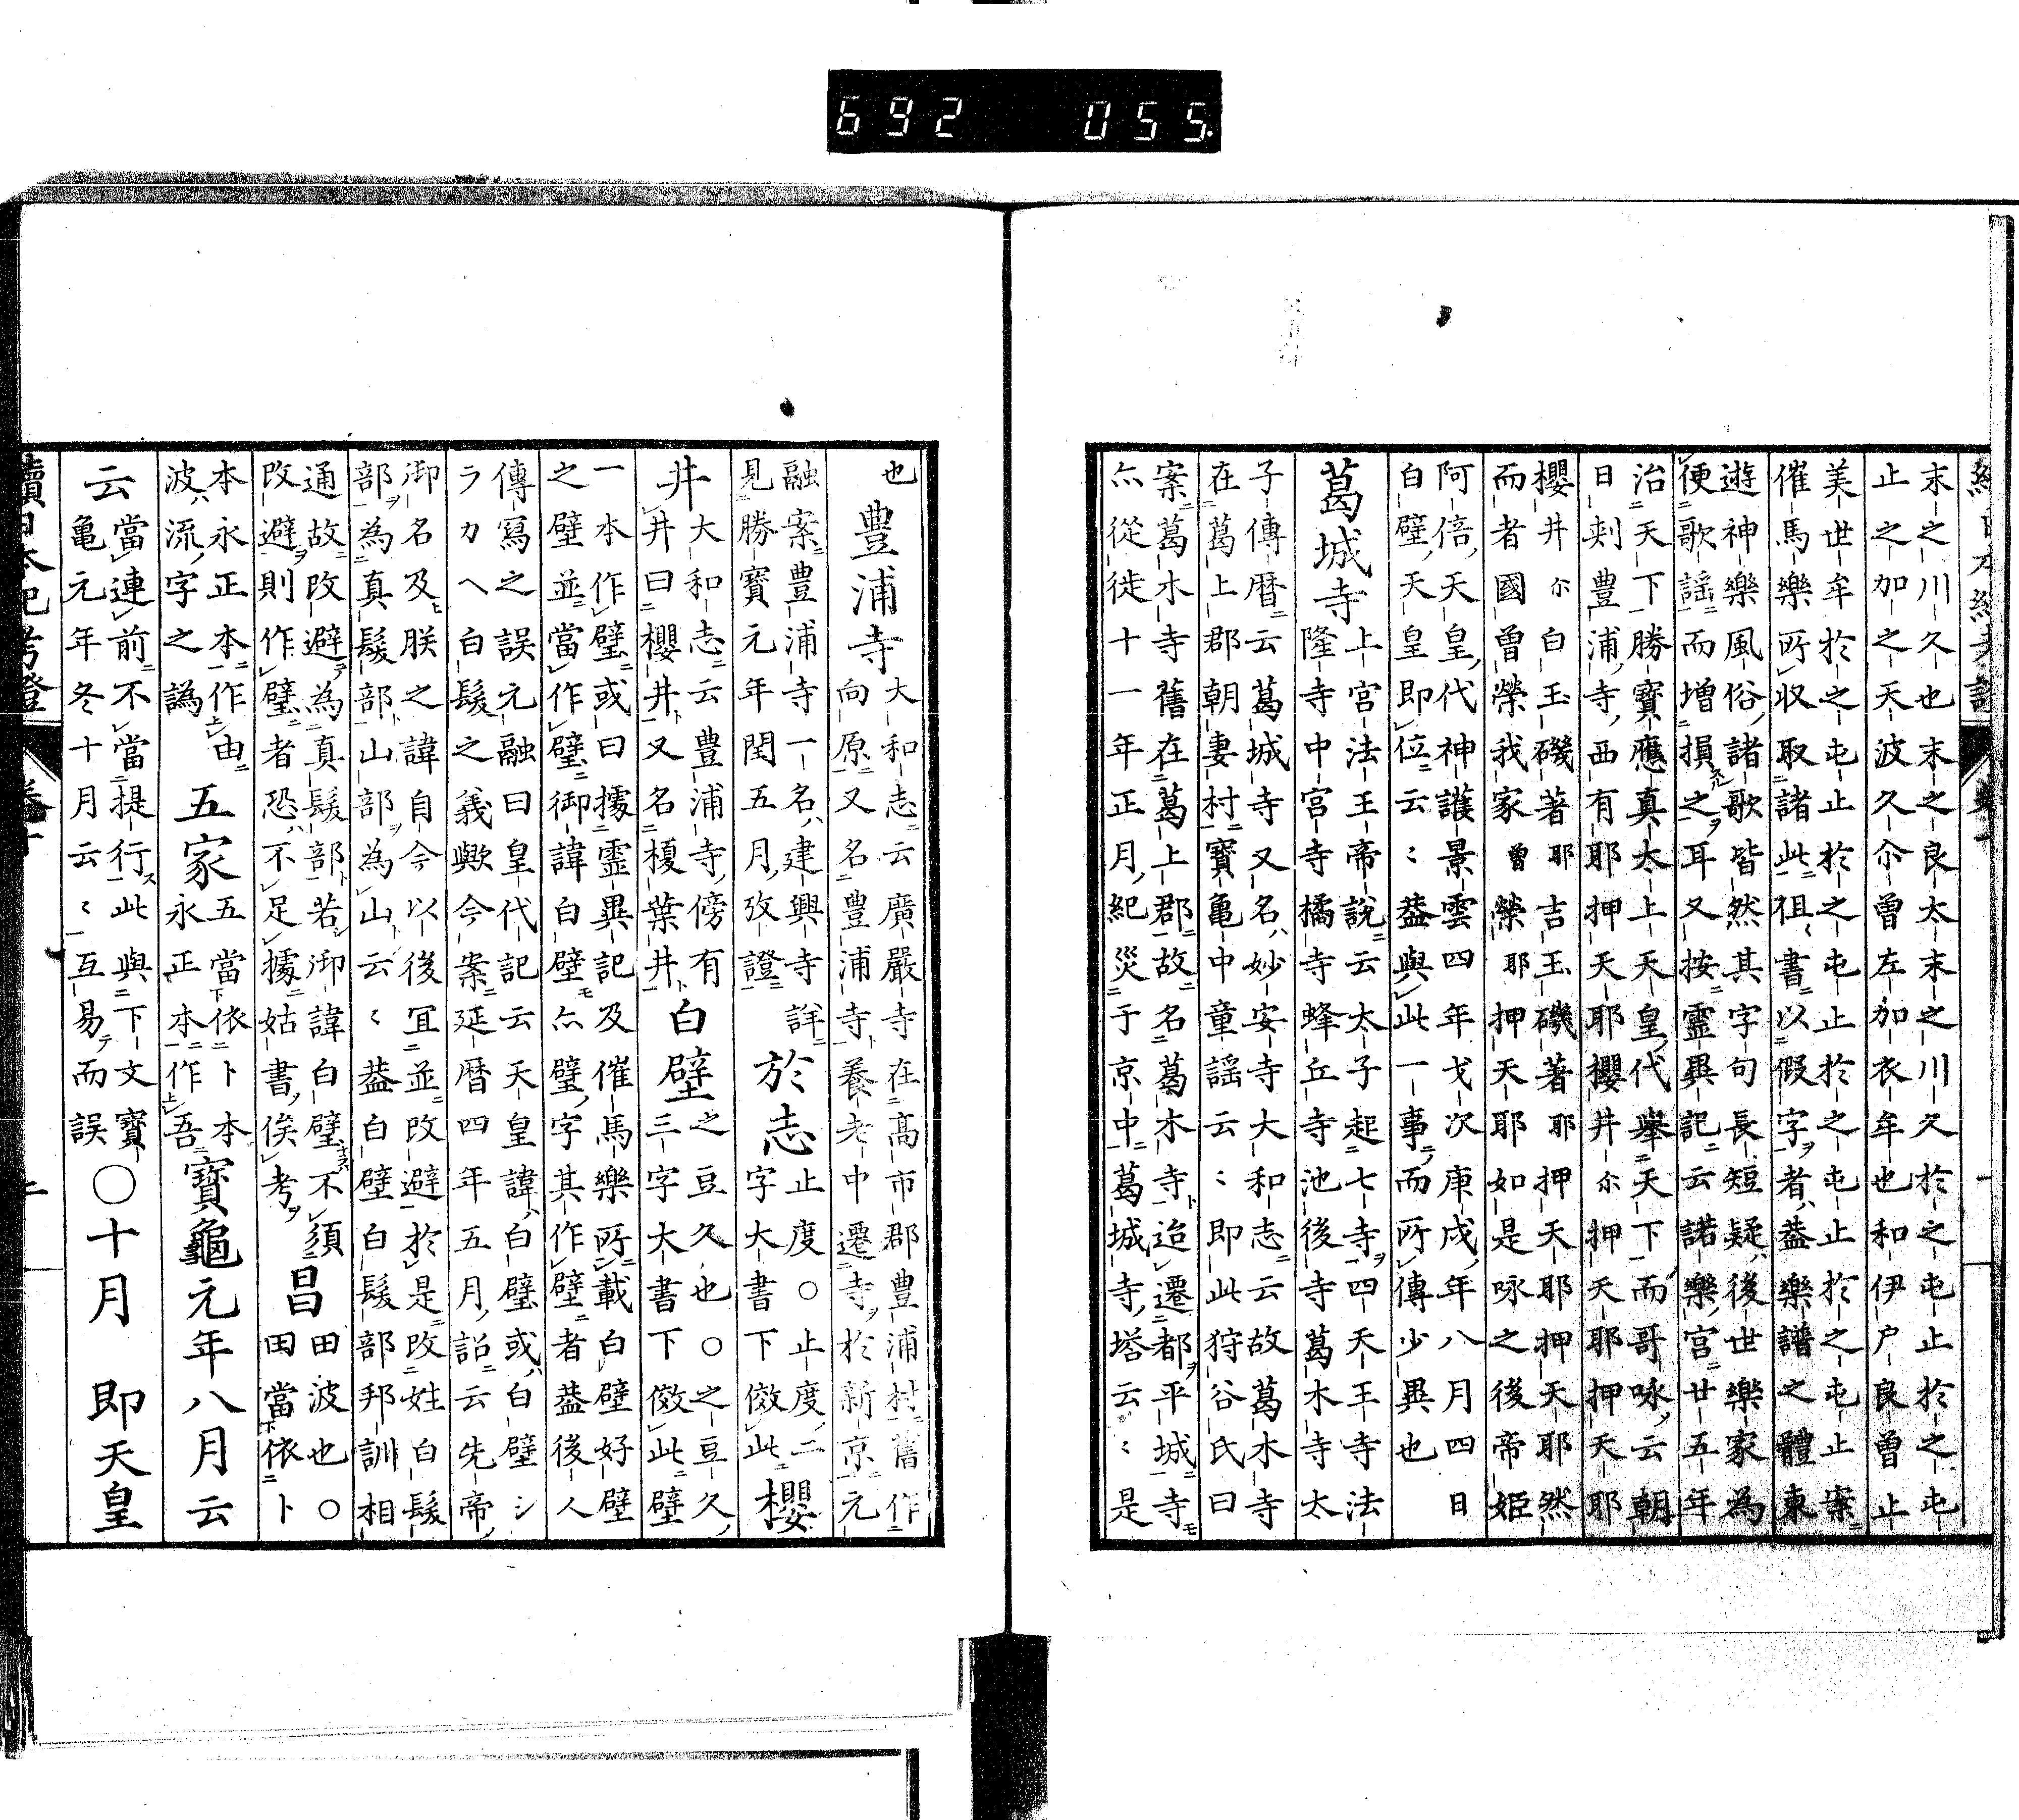 692 055.
末之川久也末之良太末之川久於之屯止於之屯
止之加之天波久尒曽左加衣牟也和伊戸良曽止
美世牟於之屯止於之屯止於之屯止於之屯止案
催馬樂所収取諸此狙〻書以假字者蓋樂譜之體東
遊神樂風俗諸歌皆然其字句長短疑後世樂家為
便歌謡而増損之耳又按靈異記云諾樂宮廿五年
治天下勝寶應真太上天皇代舉天下而哥咏云朝
日刾豊浦寺西有耶押天耶櫻井尓押天耶押天耶
櫻井尓白玉磯著耶吉玉磯著耶押天耶押天耶然
而者國曽榮我家曽榮耶押天耶如是咏之後帝姫
阿倍天皇代神護景雲四年戈次庚戌年八月四日
白壁天皇即位云〻蓋與此一事而所傳少異也
葛城寺
上宮法王帝說云太子起七寺四天王寺法
隆寺中宮寺橘寺蜂丘寺池後寺葛木寺太
子傳暦云葛城寺又名妙安寺大和志云故葛木寺
在葛上郡朝妻村寶亀中童謡云〻即此狩谷氏曰
案葛木寺舊在葛上郡故名葛木寺迨遷都平城寺
亦從徙十一年正月紀災于京中葛城寺塔云〻是
也
豊浦寺
大和志云廣嚴寺在髙市郡豊浦村舊作
向原又名豊浦寺養老中遷寺於新京元
融案豊浦寺一名建興寺詳
見勝寶元年閏五月攷證
於志
止度〇止度二
字大書下傚此
櫻
井
大和志云豊浦寺傍有
井曰櫻井又名榎葉井
白壁
之豆久也〇之豆久
三字大書下傚此壁
一本作璧或曰據靈異記及催馬樂所載白壁好璧
之壁並當作璧御諱白壁亦璧字其作壁者蓋後人
傳寫之誤元融曰皇代記云天皇諱白璧或白壁シ
ラカヘ白髮之義歟今案延暦四年五月詔云先帝
御名及朕之諱自今以後冝並改避於是改姓白髮
部為真髮部山部為山云〻蓋白壁白髮部邦訓相
通故改避為真髮部若御諱白璧不須
改避則作璧者恐不足據姑書俟考
昌
田波也〇
田當依卜
本永正本作由
波流字之譌
五家
五當依卜本
永正本作吾
寶龜元年八月云
云
當連前不當提行此與下文寶
亀元年冬十月云〻互易而誤
〇十月 即天皇
續日本紀考證